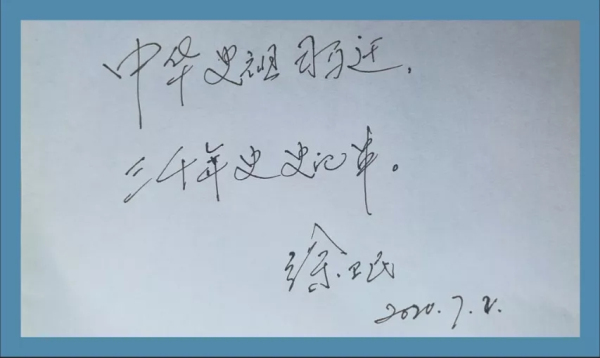 中华史祖司马迁,
三千年史史记。
徐卫民
2020.7.2.